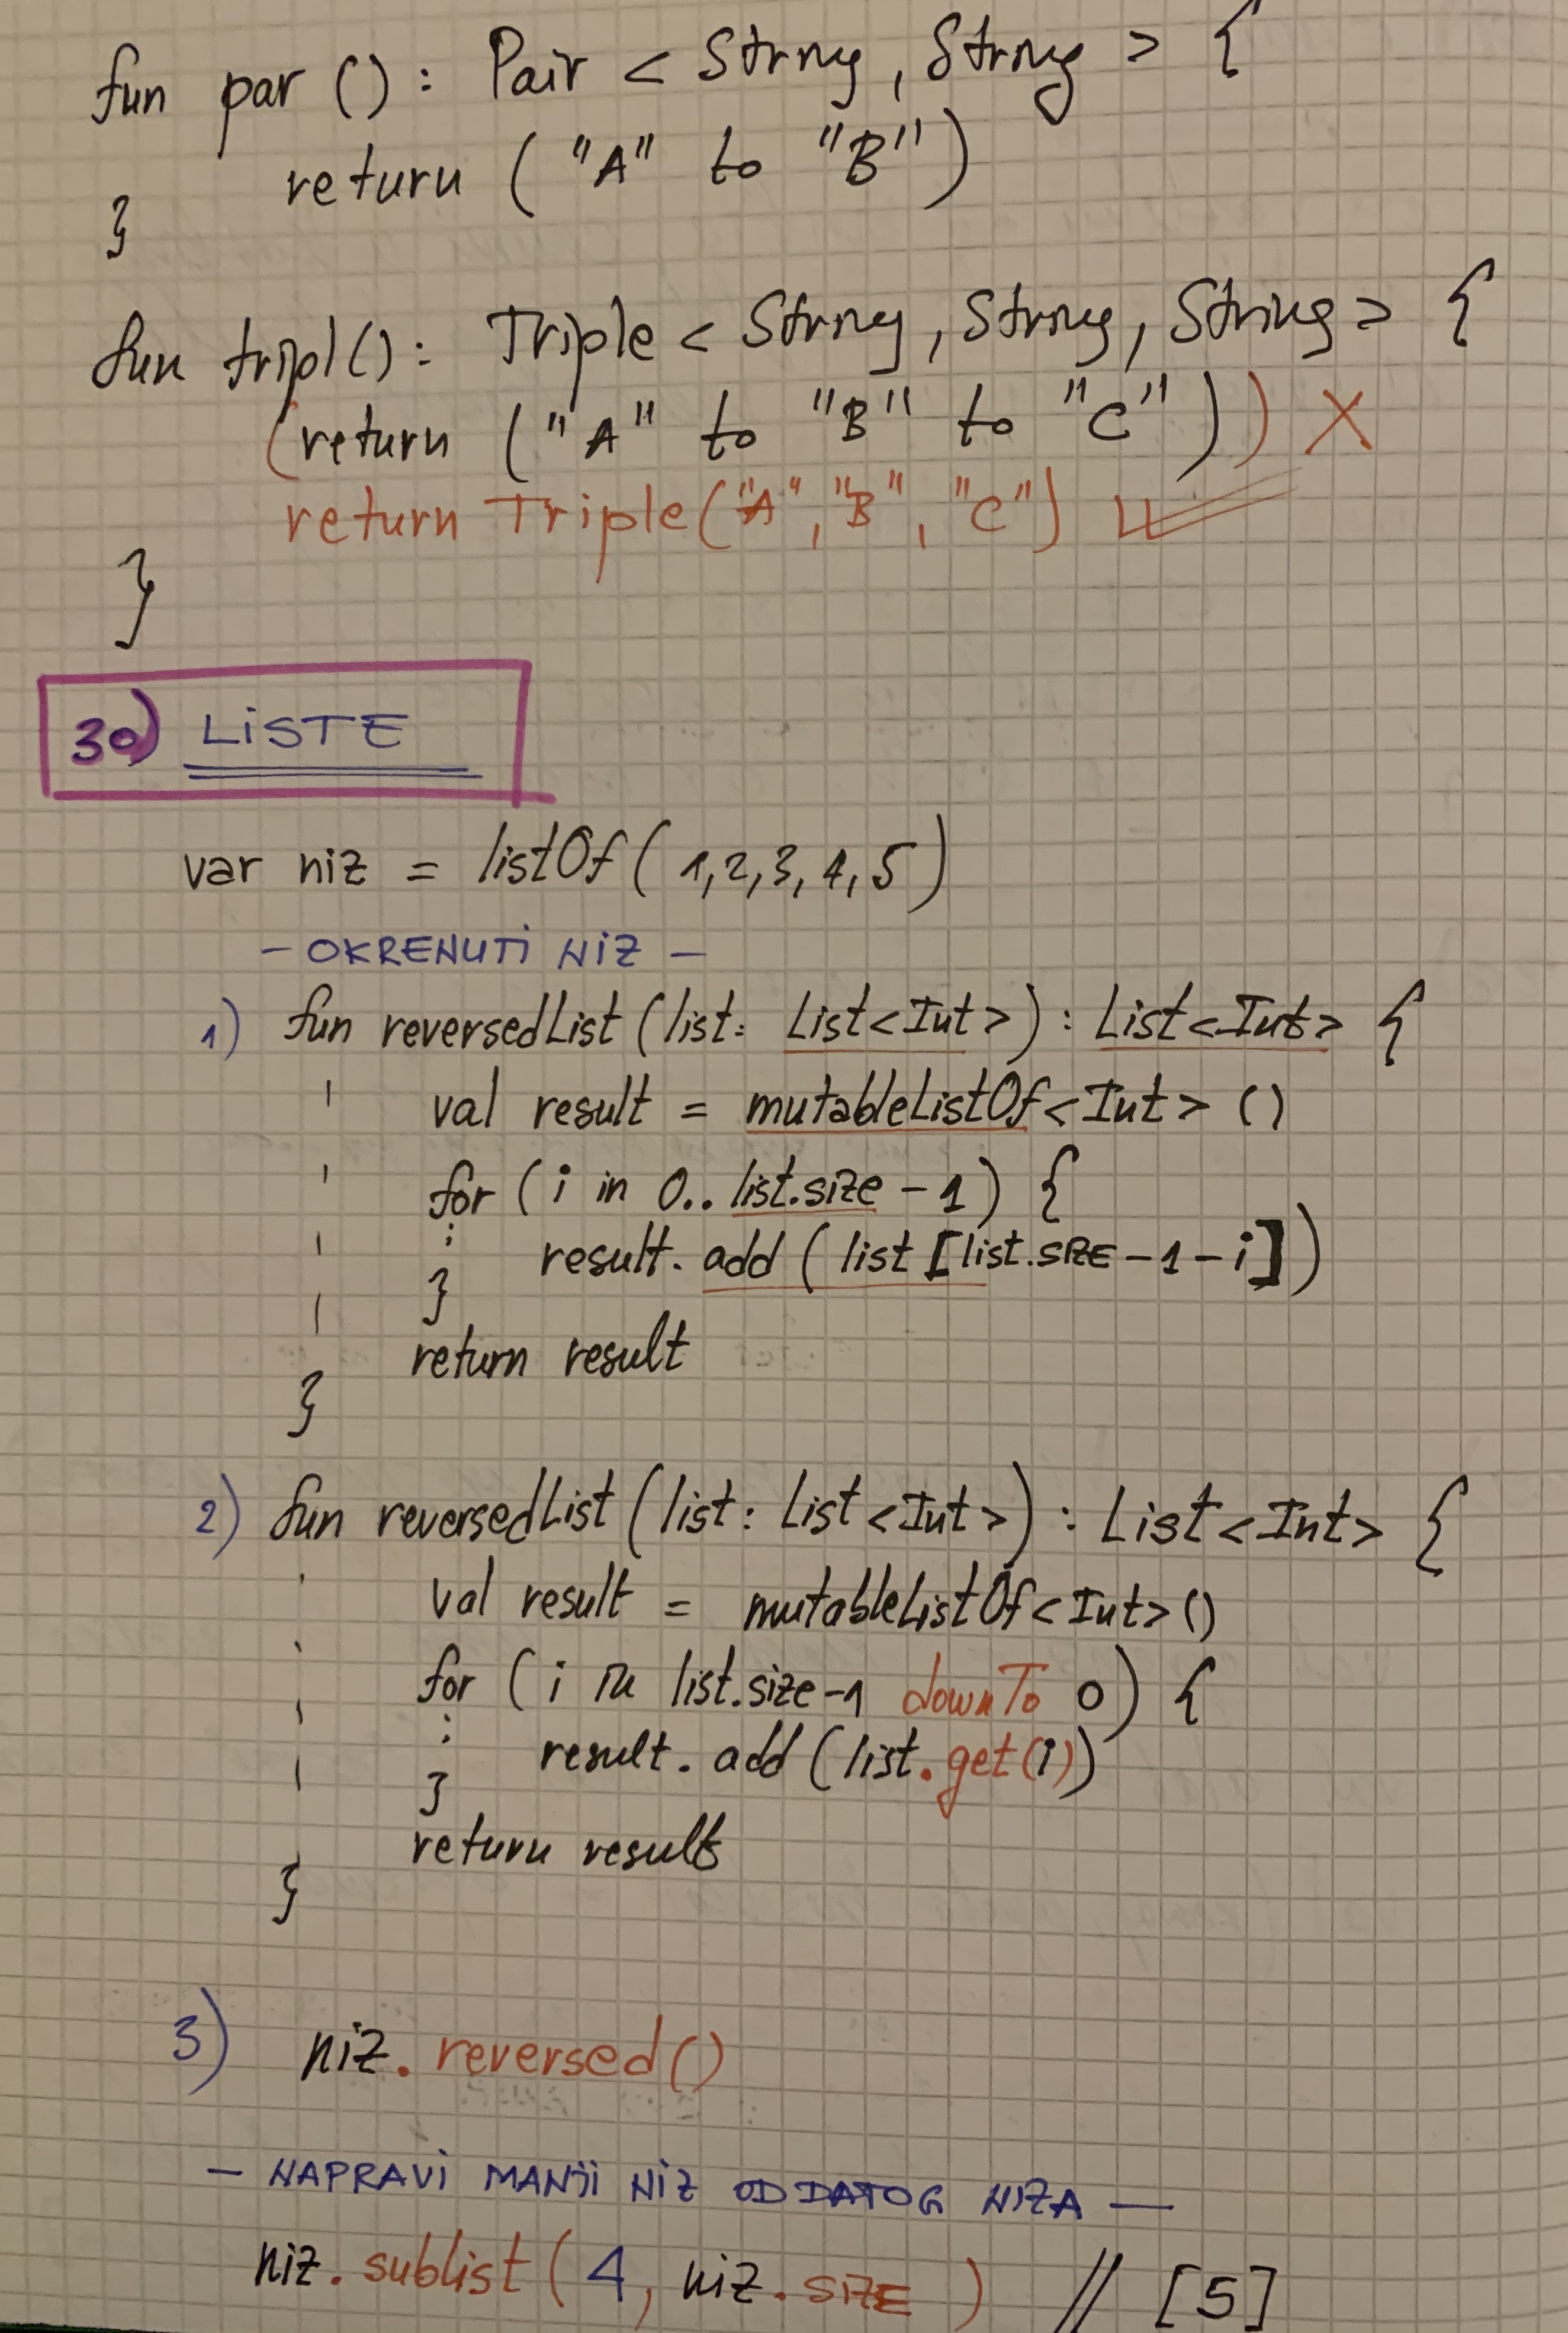 fun par () : Pair < String, String > {
return ( "A" to "B" )
}
fun tripl() : Triple < String, String, String > {
(return ( "A" to "B" to "C" )) X
return Triple("A", "B", "C")
}
30) LISTE
var niz = listOf ( 1,2,3,4,5 )
- OKRENUTI NIZ -
1) fun reversedList (list: List<Int>) : List<Int> {
val result = mutableListOf<Int> ()
for ( i in 0.. list.size - 1 ) {
result. add ( list [list.SIZE - 1 - i])
}
return result
}
2) fun reversedList (list: List <Int>) : List <Int> {
val result = mutableListOf <Int> ()
for ( i in list.size-1 downTo 0) {
result. add (list.get(i))
}
return result
}
3) niz. reversed ()
- NAPRAVI MANJI NIZ OD DATOG NIZA -
niz. sublist ( 4, niz. SIZE ) // [5]